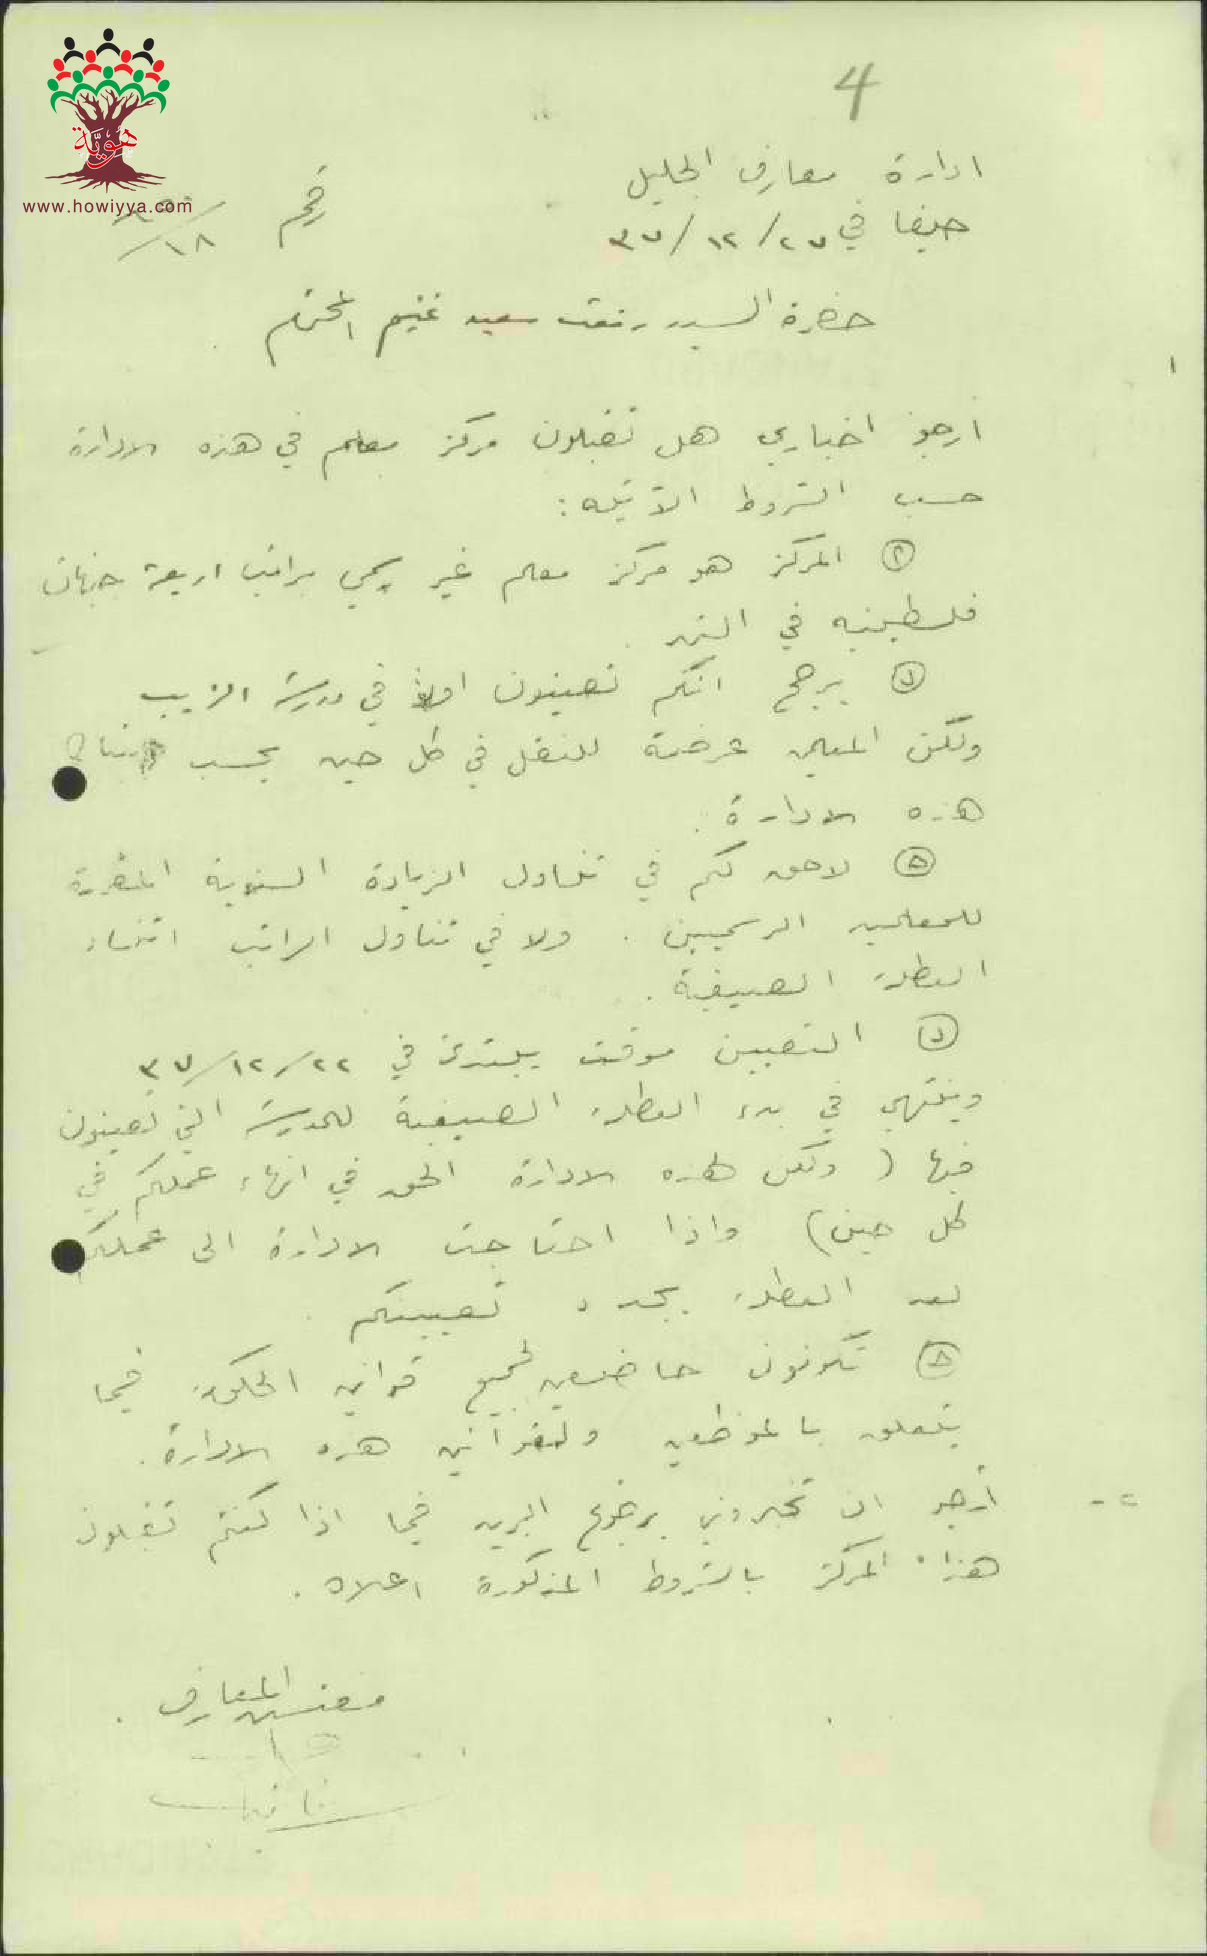 هوية
www.howiyya.com
4
ادارة معارف الجليل
حيفا في ٢٧/١٢/٣٧
رقم ١٨/
حضرة السيد رفعت سعيد غنيم المحترم
١
أرجو اخباري هل تقبلون مركز معلم في هذه الادارة
حسب الشروط الآتيه :
المركز هو مركز معلم غير رسمي براتب اربعة جنيهات
فلسطينيه في الشهر
يرجح انكم تعينون اولا في مدرسة الزيب
ولكن المعلمين عرضة للنقل في كل حين بحسب
هذه الادارة .
لا حق لكم في تناول الزيادة السنوية المقررة
للمعلمين الرسميين . ولا في تناول الراتب اثناء
العطلة الصيفية .
التعيين موقت يبتدئ في ٢٢/١٢/٣٧
وينتهي في بدء العطلة الصيفية للمدرسة التي تعينون
فيها ( ولكن لهذه الادارة الحق في انهاء عملكم في
كل حين ) واذا احتاجت الادارة الى عملكم
بعد العطلة يجدد تعيينكم .
تكونون خاضعين لجميع قوانين الحكومة فيما
يتعلق بالموظفين ولقوانين هذه الادارة .
٢ - أرجو ان تخبروني برجوع البريد فيما اذا كنتم تقبلون
هذا المركز بالشروط المذكورة اعلاه .
مفتش المعارف